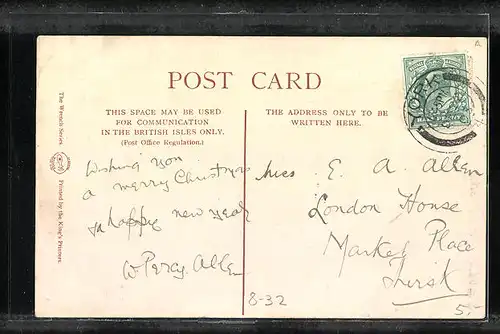 POST CARD
THIS SPACE MAY BE USED
FOR COMMUNICATION
IN THE BRITISH ISLES ONLY.
(Post Office Regulation.)
THE ADDRESS ONLY TO BE
WRITTEN HERE.
The Wrench Series.
Printed by the King's Printers.
Wishing you
a merry Christmas
& a happy new year
W. Percy. Allen
Miss E. A. Allen
London House
Market Place
Thirsk
8-32
5.-
YORK
PENNY